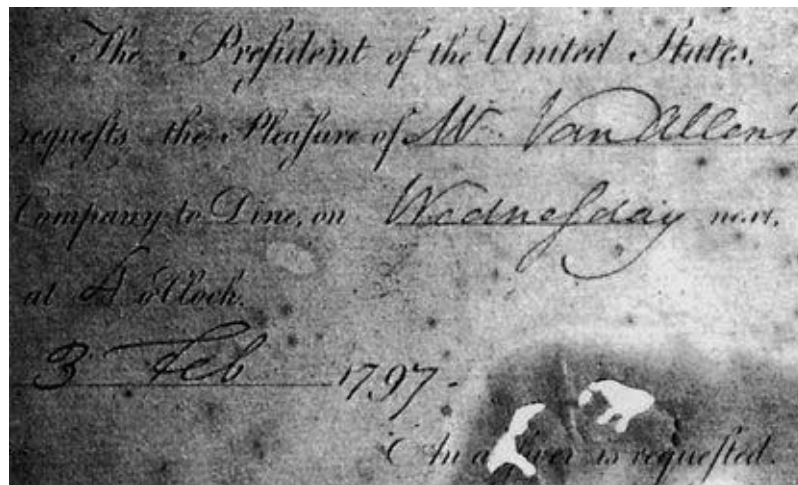 The President of the United States,
requests the Pleasure of Mr. Van Allen's
Company to Dine, on Wednesday next,
at 4 o'Clock.
3 Feb 1797.
An answer is requested.